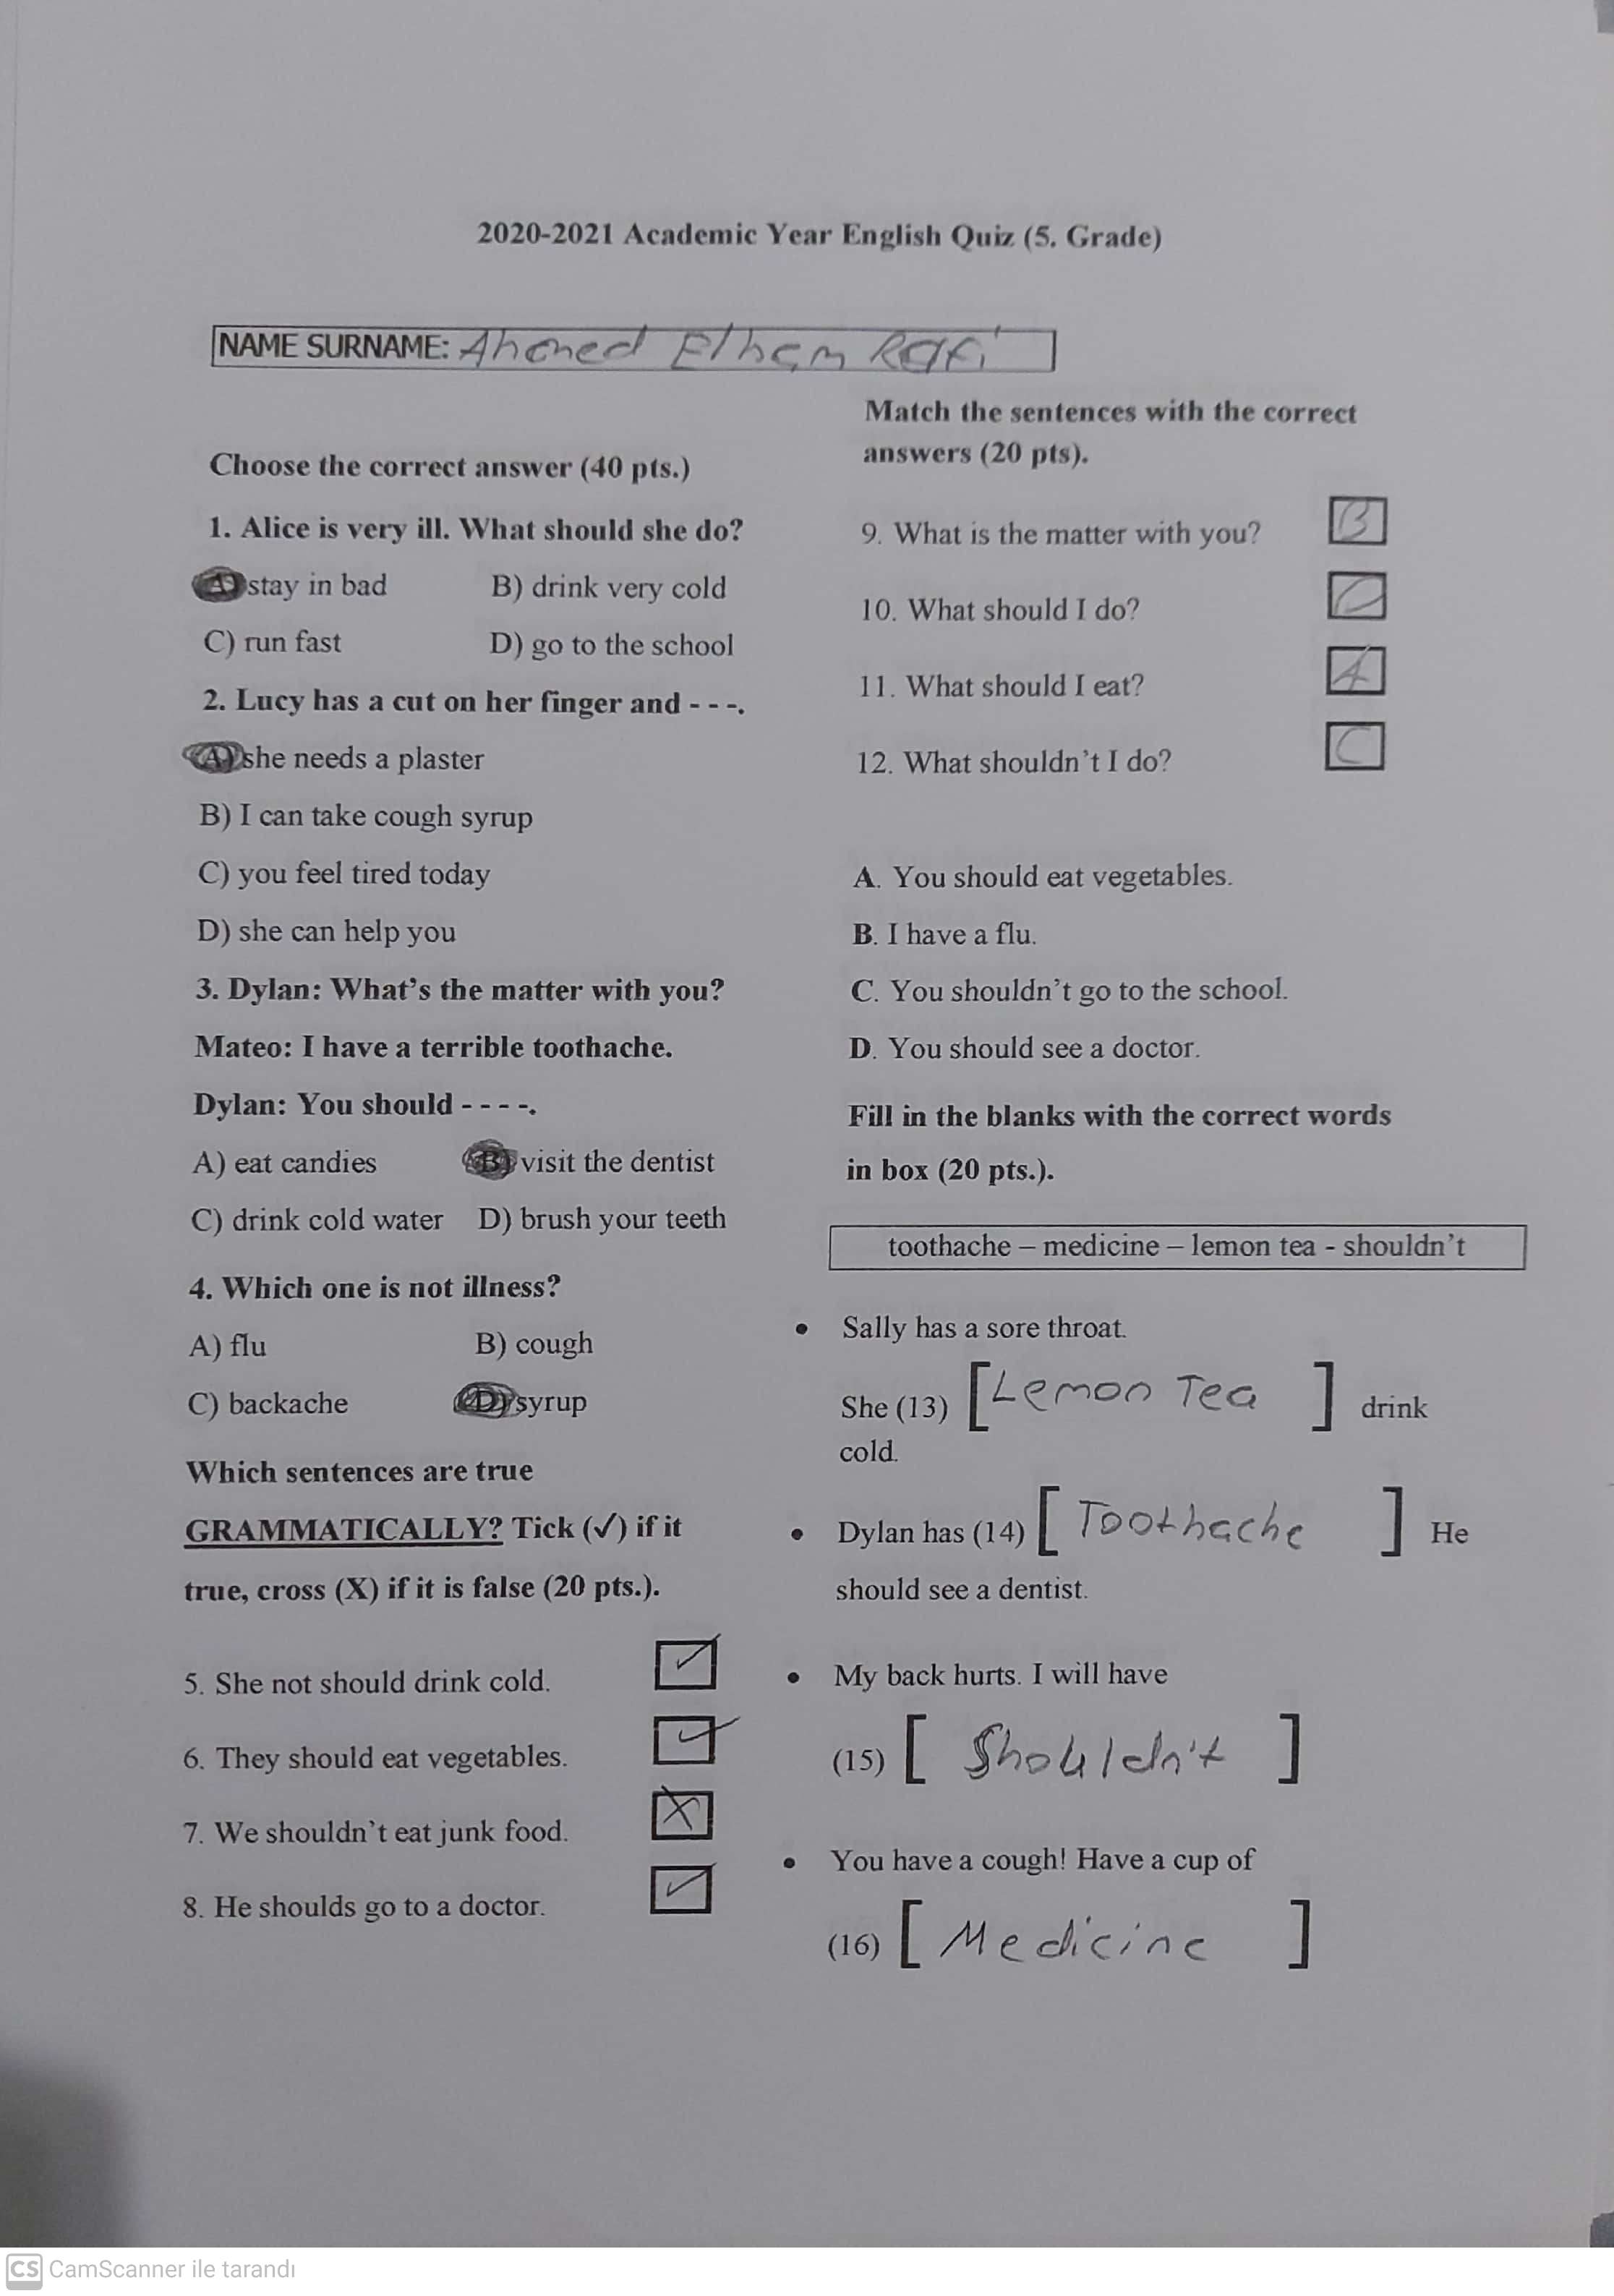 2020-2021 Academic Year English Quiz (5. Grade)
NAME SURNAME: Ahmed Elham Rafi
Choose the correct answer (40 pts.)
1. Alice is very ill. What should she do?
A) stay in bad B) drink very cold
C) run fast D) go to the school
2. Lucy has a cut on her finger and - - -.
A) she needs a plaster
B) I can take cough syrup
C) you feel tired today
D) she can help you
3. Dylan: What's the matter with you?
Mateo: I have a terrible toothache.
Dylan: You should - - - -.
A) eat candies B) visit the dentist
C) drink cold water D) brush your teeth
4. Which one is not illness?
A) flu B) cough
C) backache D) syrup
Which sentences are true
GRAMMATICALLY? Tick (✓) if it
true, cross (X) if it is false (20 pts.).
5. She not should drink cold. ✓
6. They should eat vegetables. ✓
7. We shouldn't eat junk food. X
8. He shoulds go to a doctor. ✓
Match the sentences with the correct
answers (20 pts).
9. What is the matter with you? B
10. What should I do? D
11. What should I eat? A
12. What shouldn't I do? C
A. You should eat vegetables.
B. I have a flu.
C. You shouldn't go to the school.
D. You should see a doctor.
Fill in the blanks with the correct words
in box (20 pts.).
toothache – medicine – lemon tea - shouldn't
• Sally has a sore throat.
She (13) [Lemon Tea ] drink
cold.
• Dylan has (14) [ Toothache ] He
should see a dentist.
• My back hurts. I will have
(15) [ Shouldn't ]
• You have a cough! Have a cup of
(16) [ Medicine ]
CS CamScanner ile tarandı